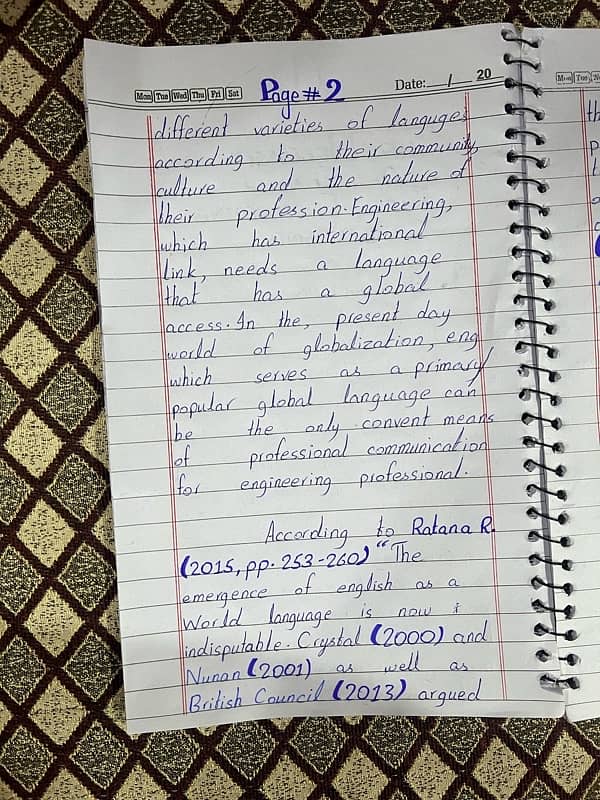 Mon Tue Wed Thu Fri Sat
Page # 2
Date: / 20
different varieties of languges
according to their community,
culture and the nature of
their profession. Engineering,
which has international
link, needs a language
that has a global
access. In the, present day
world of globalization, eng
which serves as a primary
popular global language can
be the only convent means
of professional communication
for engineering professional.
According to Ratana R.
(2015, pp. 253-260) "The
emergence of english as a
World language is now i
indisputable. Crystal (2000) and
Nunan (2001) as well as
British Council (2013) argued
Mon Tue
th